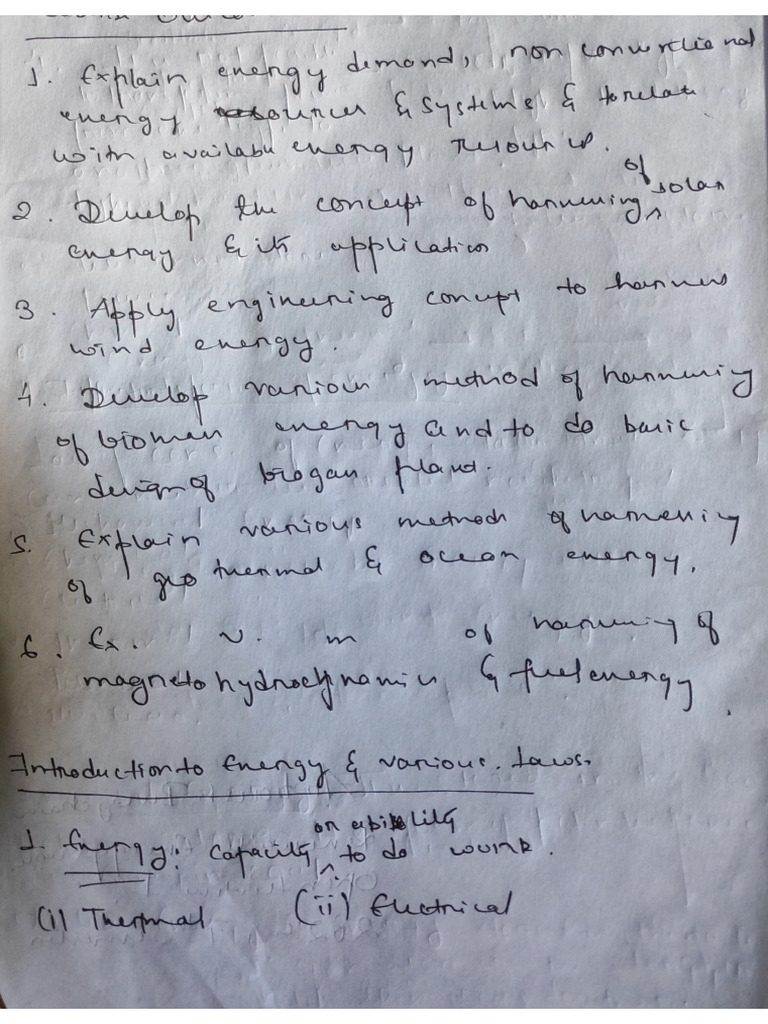 1. Explain energy demand, non conventional
energy sources & systems & to relate
with available energy resources.
2. Develop the concept of harnessing of solar
energy & its application
3. Apply engineering concept to harness
wind energy.
4. Develop various method of harnessing
of biomass energy and to do basic
design of biogas plant.
5. Explain various methods of harnessing
of geo thermal & ocean energy.
6. Ex. v. m of harnessing of
magneto hydrodynamics & fuel energy.
Introduction to Energy & various laws.
1. Energy: Capacity or ability to do work.
(i) Thermal (ii) Electrical